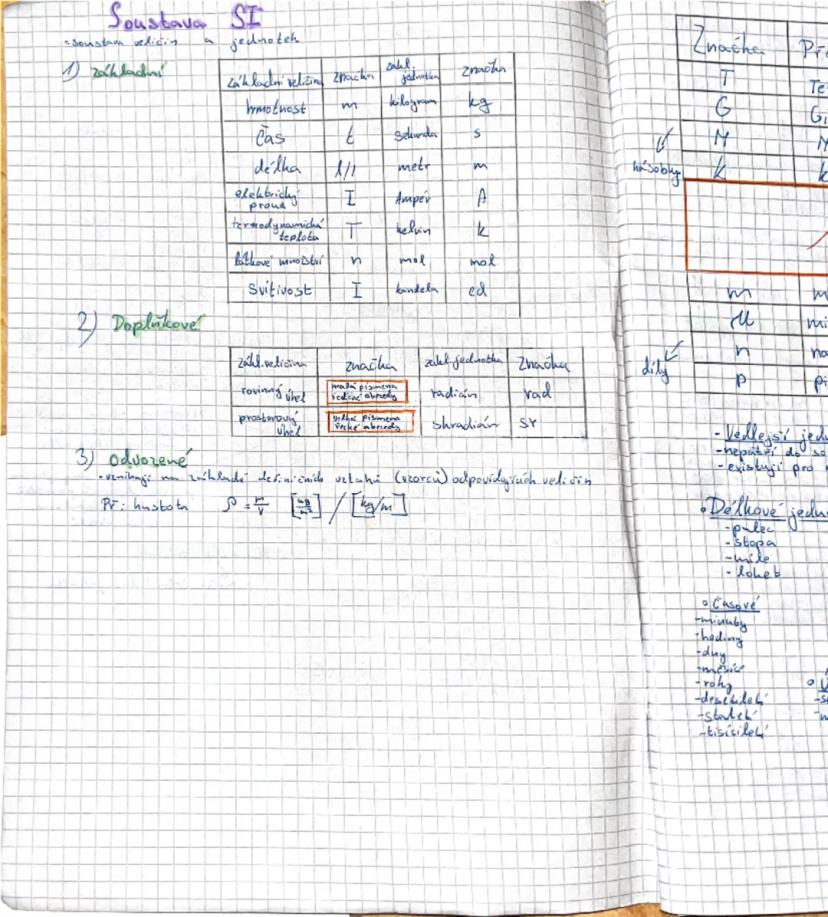 Soustava SI
- soustava veličin a jednotek
1) základní
základní veličina značka zákl. jednotka značka
hmotnost m kilogram kg
čas t sekunda s
délka l/l metr m
elektrický proud I Ampér A
termodynamická teplota T kelvin k
látkové množství n mol mol
Svítivost I kandela cd
2) Doplňkové
zákl. veličina značka zákl. jednotka značka
rovinný úhel malá písmena řecké abecedy radián rad
prostorový úhel velká písmena řecké abecedy sr
3) odvozené
- vznikají na základě definičních vztahů (vzorců) odpovídajících veličin
Př: hustota ρ = m/V [kg/m³] / [kg/m]
Značka Př
T Te
G Gi
M M
k k
násobky
m m
μ mi
n na
p pi
díly
- Vedlejší jedn
- nepatří do so
- existují pro
Délkové jedn
- palec
- stopa
- míle
- loket
Časové
- minuty
- hodiny
- dny
- měsíce
- roky
- desetiletí
- století
- tisíciletí